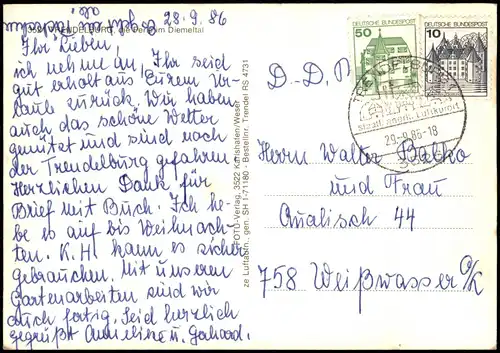 28.9.86
3526 TRENDELBURG, die Perle im Diemeltal
Ihr Lieben,
ich nehme an, Ihr seid
gut erholt aus Eurem Ur-
laub zurück. Wir haben
auch das schöne Wetter
genützt und sind nach
der Trendelburg gefahren
Herzlichen Dank für
Brief mit Buch. Ich he-
be es auf bis Weihnach-
ten. K.H. kann es sicher
gebrauchen. Mit unseren
Gartenarbeiten sind wir
auch fertig. Seid herzlich
gegrüßt Anneliese u. Gerhard.
FOTO-Verlag, 3522 Karlshafen/Weser
ze Luftabfn. gen. SH I-71180 - Bestellnr. Trendel RS 4731
DEUTSCHE BUNDESPOST
50
DEUTSCHE BUNDESPOST
10
TRENDELBURG
Staatl. anerk. Luftkurort
29.-9.86-18
D.-D.R.
Herrn Walter Babko
und Frau
Qualisch 44
758 Weißwasser O/L